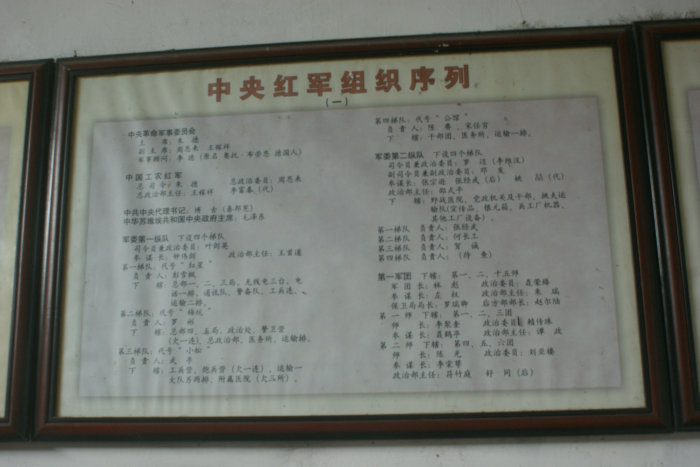 中央红军组织序列
（一）
中央革命军事委员会
主　席：朱　德
副主席：周恩来　王稼祥
军事顾问：李　德（原名 奥托·布劳恩 德国人）
中国工农红军
总司令：朱　德　总政治委员：周恩来
总政治部主任：王稼祥　李富春（代）
中共中央代理书记：博　古（秦邦宪）
中华苏维埃共和国中央政府主席：毛泽东
军委第一纵队　下设四个梯队
司令员兼政治委员：叶剑英
参谋长：钟伟剑　政治部主任：王首道
第一梯队：代号“红星”
负责人：彭雪枫
下　辖：总部一、二、三局，无线电三台、电
话一排、通讯队、警备队、工兵连、
运输二排。
第二梯队：代号“梅坑”
负责人：罗　彬
下　辖：总部四、五局，政治处、警卫营
（欠一连）、总政治部、医务所、运输一排。
第三梯队：代号“小松”
负责人：武　亭
下　辖：工兵营，炮兵营（欠一连），运输一
大队另两排，附属医院（欠三所）。
第四梯队：代号“公馆”
负责人：陈　赓、宋任穷
下　辖：干部团、医务所、运输一排。
军委第二纵队　下设四个梯队
司令员兼政治委员：罗　迈（李维汉）
副司令员兼副政治委员：邓　发
参谋长：张宗逊　张经武（后）　姚　喆（代）
政治部主任：邵式平
下　辖：野战医院、党政机关及干部、挑夫运
输队（宣传品、银元箱、兵工厂机器、
其他工厂设备）。
第一梯队　负责人：张经武
第二梯队　负责人：何长工
第三梯队　负责人：贺　诚
第四梯队　负责人：（待　查）
第一军团　下辖：第一、二、十五师
军团长：林　彪　政治委员：聂荣臻
参谋长：左　权　政治部主任：朱　瑞
保卫局局长：罗瑞卿　后方部部长：赵尔陆
第一师　下辖：第一、二、三团
师　长：李聚奎　政治委员：赖传珠
参谋长：聂鹤亭　政治部主任：谭　政
第二师　下辖：第四、五、六团
师　长：陈　光　政治委员：刘亚楼
参谋长：李棠萼
政治部主任：符竹庭　舒　同（后）